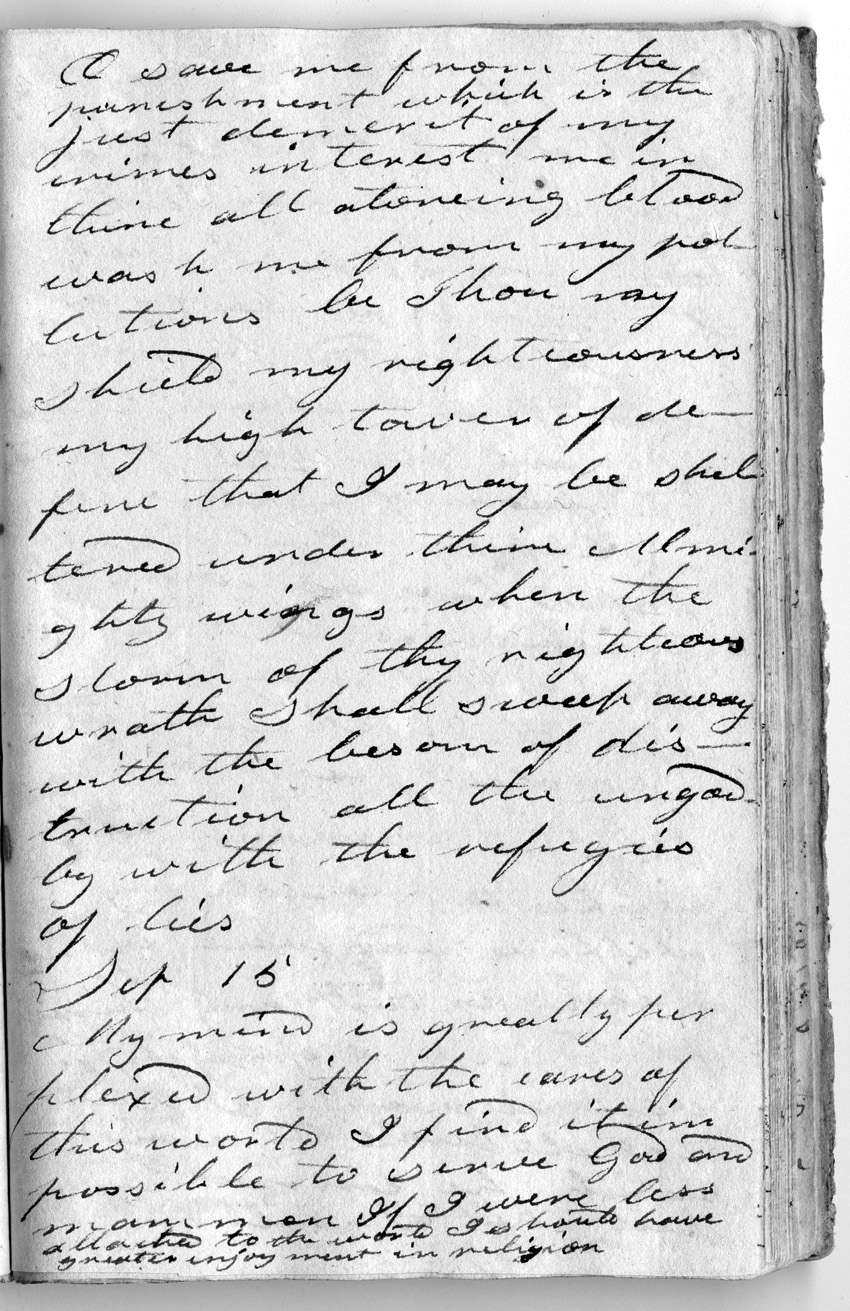 O save me from the
punishment which is the
just demerit of my
crimes interest me in
thine all atoneing blood
wash me from my pol
lutions be Thou my
shield my righteousness
my high tower of de—
fene that I may be shel
tered under thine Almi-
ghty wings when the
storm of thy righteous
wrath shall sweep away
with the besom of dis—
truction all the ungod-
ly with the refugies
of lies
Sep 15
My mind is greatly per
plexed with the cares of
this world I find it im
possible to serve God and
mammon If I were less
attached to the world I should have
greater enjoyment in religion